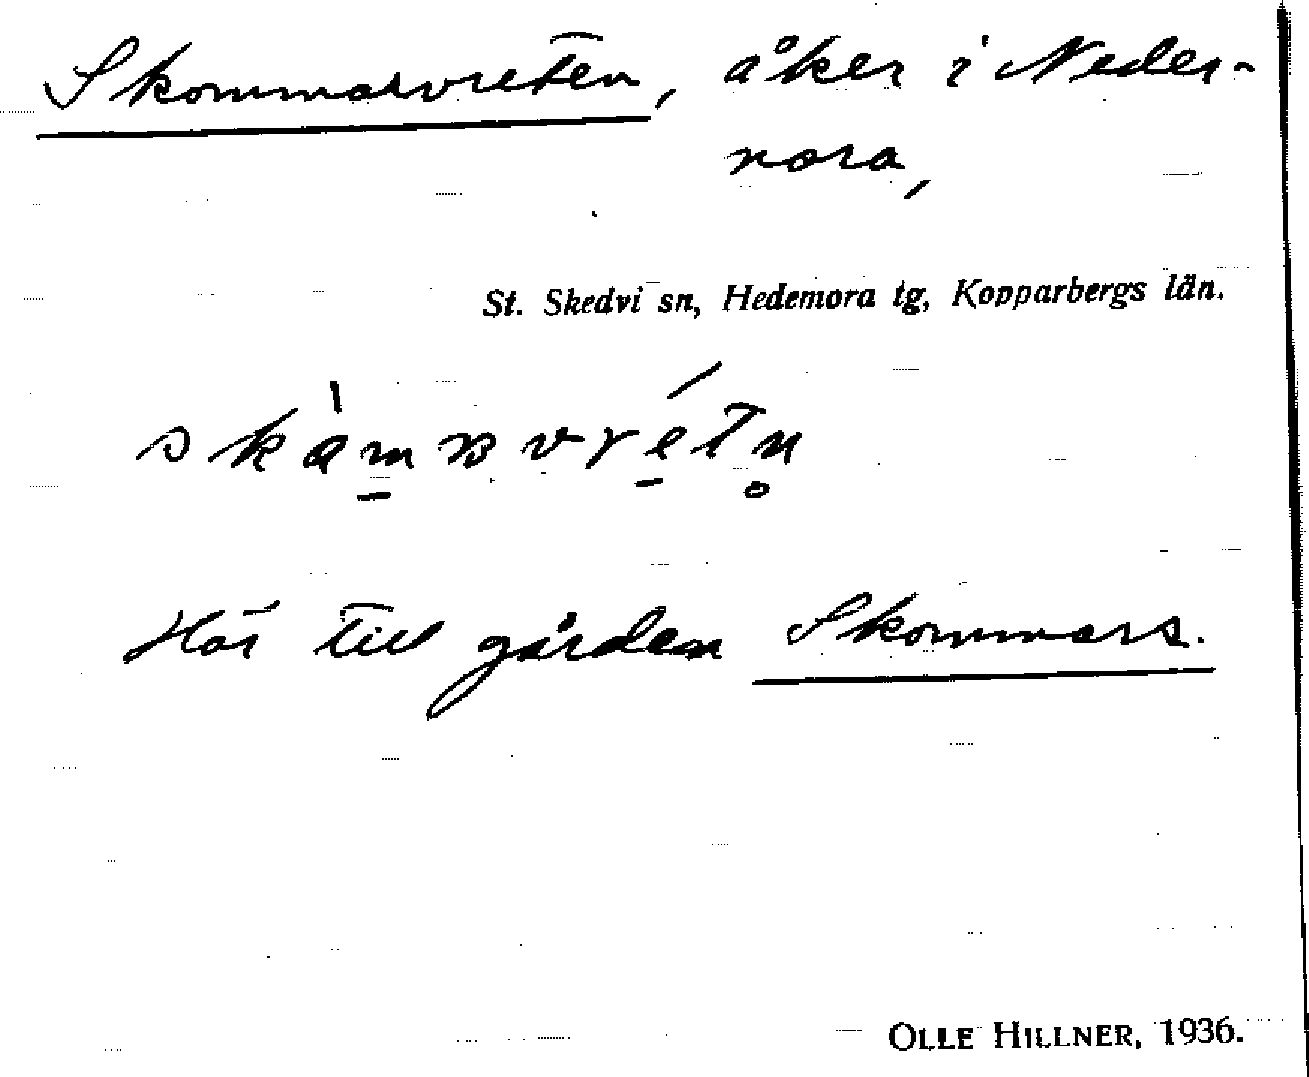 Skommarvreten, åker i Neder-
nora,
St. Skedvi sn, Hedemora tg, Kopparbergs län.
Hör till gården Skommars.
OLLE HILLNER, 1936.